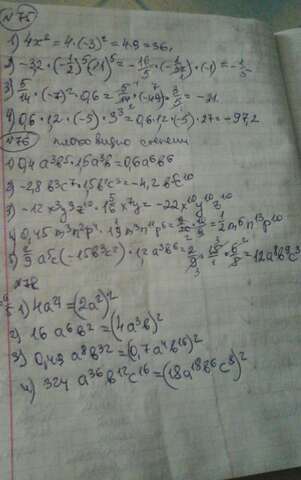 N 75
1) 4x² = 4·(-3)² = 4·9 = 36,
2) -3,2·(-½)⁵(-1)⁵ = -16/5·(-1/32)·(-1) = -1/
3) 5/14·(-7)²·0,6 = 5/14·(-49)·3/5 = -21.
4) 0,6·1,2·(-5)·9³ = 0,6·1,2·(-5)·27 = -97,2
N 76 плохо видно степени
1) 0,4a³b⁵·1,5a³b = 0,6a⁶b⁶
2) -2,8b³c⁷·1,5b²c³ = -4,2b⁵c¹⁰
3) -12x³y⁹z¹⁰· x⁷y = -22x¹⁰y¹⁰z¹⁰
4) 0,45m³n²p⁴·1 m³n¹¹p⁶ = = ½m⁶n¹³p¹⁰
5) 2/9a⁵c(-15b³c²)·1,2a³b⁶ = = 12a⁸b⁹c³
N 78
1) 4a⁴ = (2a²)²
2) 16a⁶b² = (4a³b)²
3) 0,49a⁸b³² = (0,7a⁴b¹⁶)²
4) 324a³⁶b¹²c¹⁶ = (18a¹⁸b⁶c⁸)²